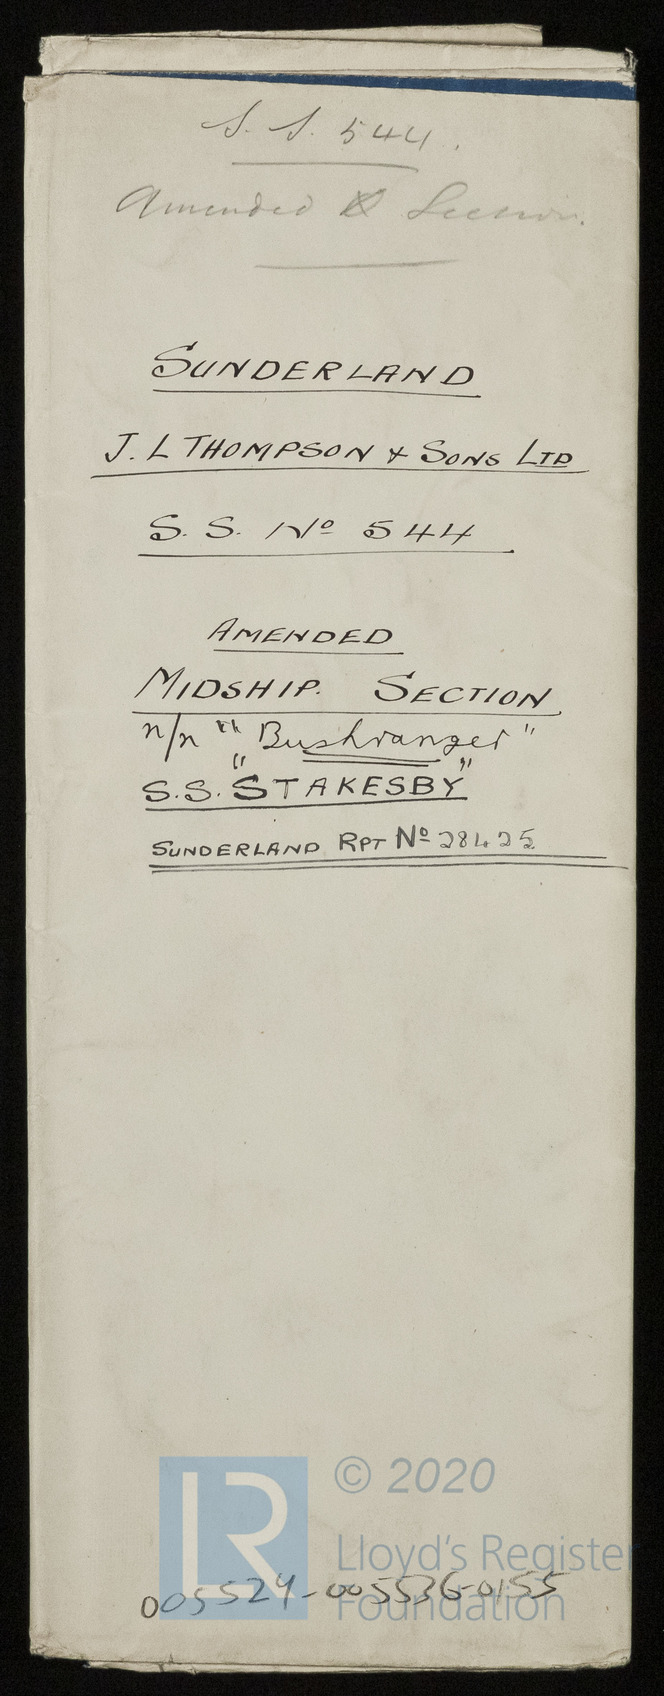 S. S. 544.
Amended Section.
SUNDERLAND
J. L THOMPSON & SONS LTD
S. S. No 544
AMENDED
MIDSHIP. SECTION
n/n "Bushranger"
S.S. "STAKESBY"
SUNDERLAND RPT No 28425
© 2020
LR
Lloyd's Register
Foundation
005524-005536-0155